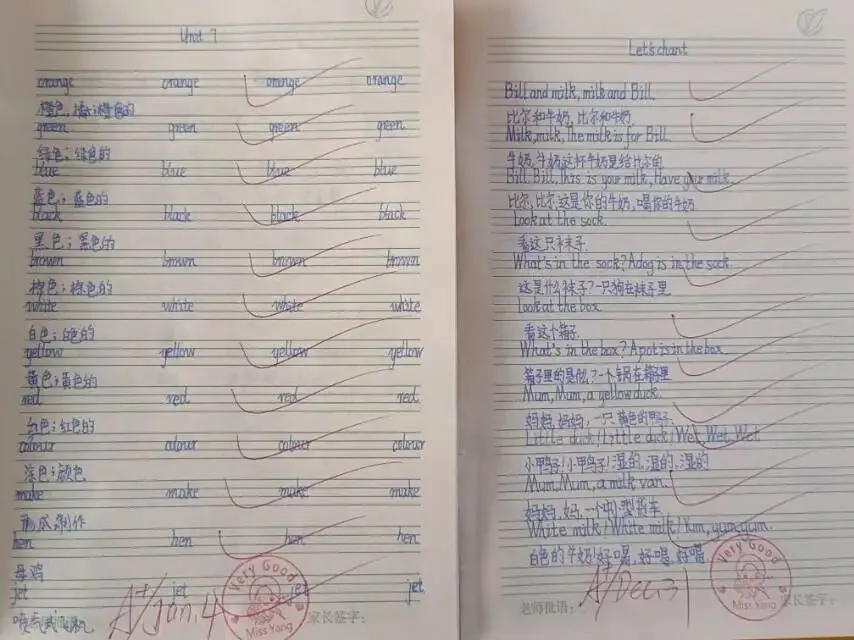 Unit 7
orange orange orange orange
橙色,橘;橙色的
green green green green
绿色;绿色的
blue blue blue blue
蓝色;蓝色的
black black black black
黑色;黑色的
brown brown brown brown
棕色;棕色的
white white white white
白色;白色的
yellow yellow yellow yellow
黄色;黄色的
red red red red
红色;红色的
colour colour colour colour
涂色;颜色
make make make make
形成,制作
hen hen hen hen
母鸡
jet jet jet jet
喷气式飞机
A+/Jan.4
Very Good
Miss Yang
家长签字:
Let's chant
Bill and milk, milk and Bill.
比尔和牛奶,比尔和牛奶
Milk, milk, The milk is for Bill.
牛奶,牛奶这杯牛奶是给比尔的
Bill, Bill, this is your milk, Have your milk.
比尔,比尔,这是你的牛奶,喝你的牛奶
Look at the sock.
看这只袜子
What's in the sock? A dog is in the sock.
这是什么袜子?一只狗在袜子里
Look at the box.
看这个箱子
What's in the box? A pot is in the box.
箱子里的是什么?一个锅在箱子里
Mum, Mum, a yellow duck.
妈妈,妈妈,一只黄色的鸭子
Little duck! Little duck! Wet, Wet, Wet.
小鸭子!小鸭子!湿的,湿的,湿的
Mum, Mum, a milk van.
妈妈,妈,一个小型货车
White milk! White milk! Yum, yum, yum.
白色的牛奶!好喝,好喝,好喝
老师批语: A+/Dec.31
Very Good
Miss Yang
家长签字: